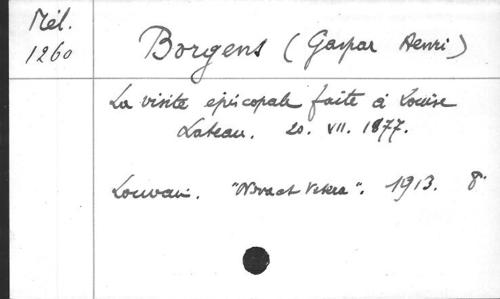 Mél.
1260
Borgens (Gaspar Henri)
La visite épiscopale faite à Louise
Lateau. 20. VII. 1877.
Louvain. "Nova et Vetera". 1913. 8°